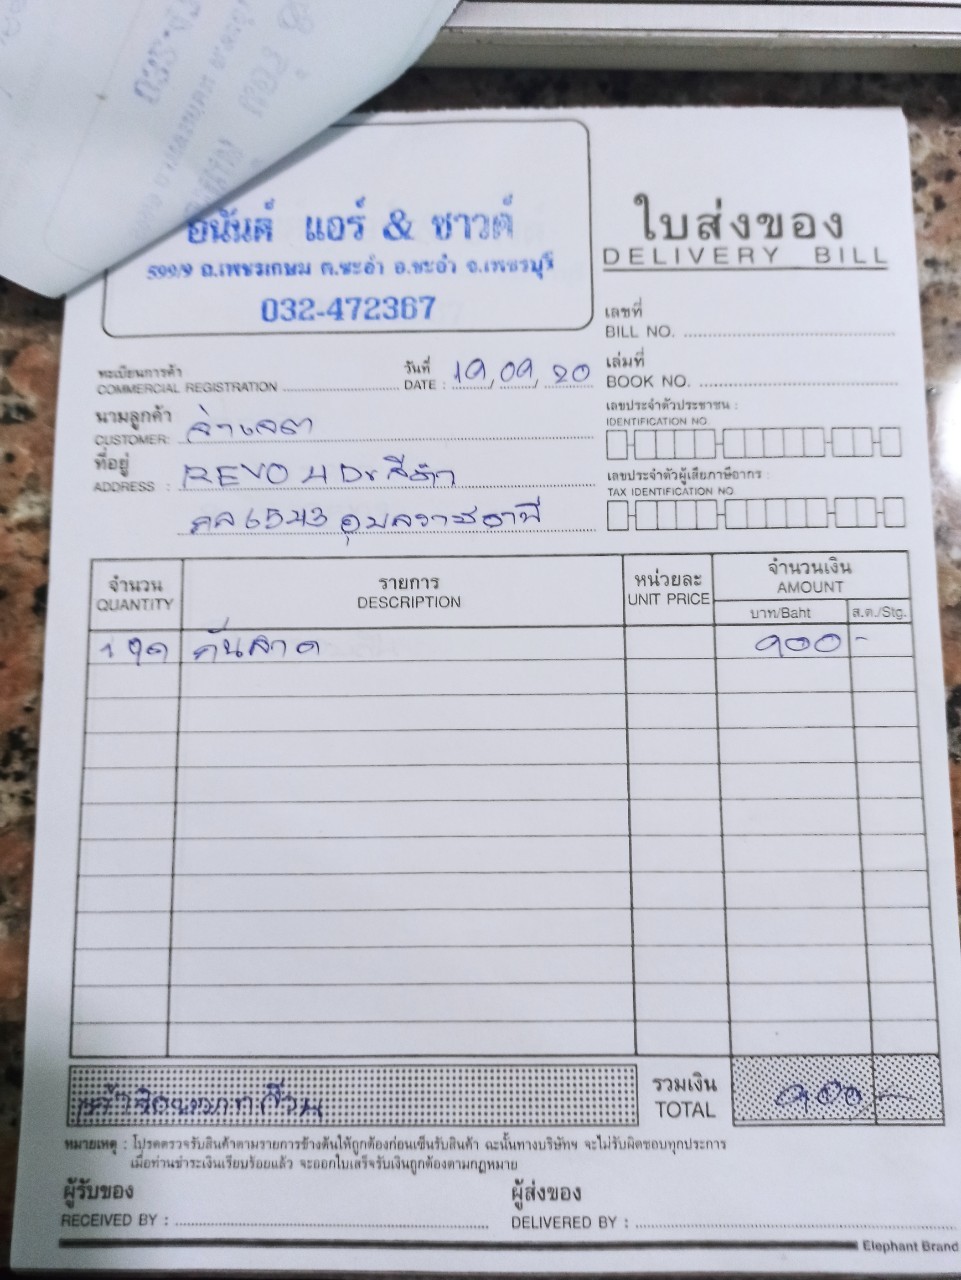 อนันต์ แอร์ & ซาวด์
599/9 ถ.เพชรเกษม ต.ชะอำ อ.ชะอำ จ.เพชรบุรี
032-472367
ใบส่งของ
DELIVERY BILL
เลขที่
BILL NO.
ทะเบียนการค้า
COMMERCIAL REGISTRATION
วันที่
DATE : 19, 09, 20
เล่มที่
BOOK NO.
นามลูกค้า
CUSTOMER:
เลขประจำตัวประชาชน :
IDENTIFICATION NO.
ที่อยู่
ADDRESS : REVO 4 Dr สีดำ
เลขประจำตัวผู้เสียภาษีอากร :
TAX IDENTIFICATION NO.
6543 อุบลราชธานี
จำนวน
QUANTITY
รายการ
DESCRIPTION
หน่วยละ
UNIT PRICE
จำนวนเงิน
AMOUNT
บาท/Baht
ส.ต./Stg.
1 ชุด
900 -
รวมเงิน
TOTAL
900 -
หมายเหตุ : โปรดตรวจรับสินค้าตามรายการข้างต้นให้ถูกต้องก่อนเซ็นรับสินค้า ฉะนั้นทางบริษัทฯ จะไม่รับผิดชอบทุกประการ
เมื่อท่านชำระเงินเรียบร้อยแล้ว จะออกใบเสร็จรับเงินถูกต้องตามกฎหมาย
ผู้รับของ
RECEIVED BY :
ผู้ส่งของ
DELIVERED BY :
Elephant Brand